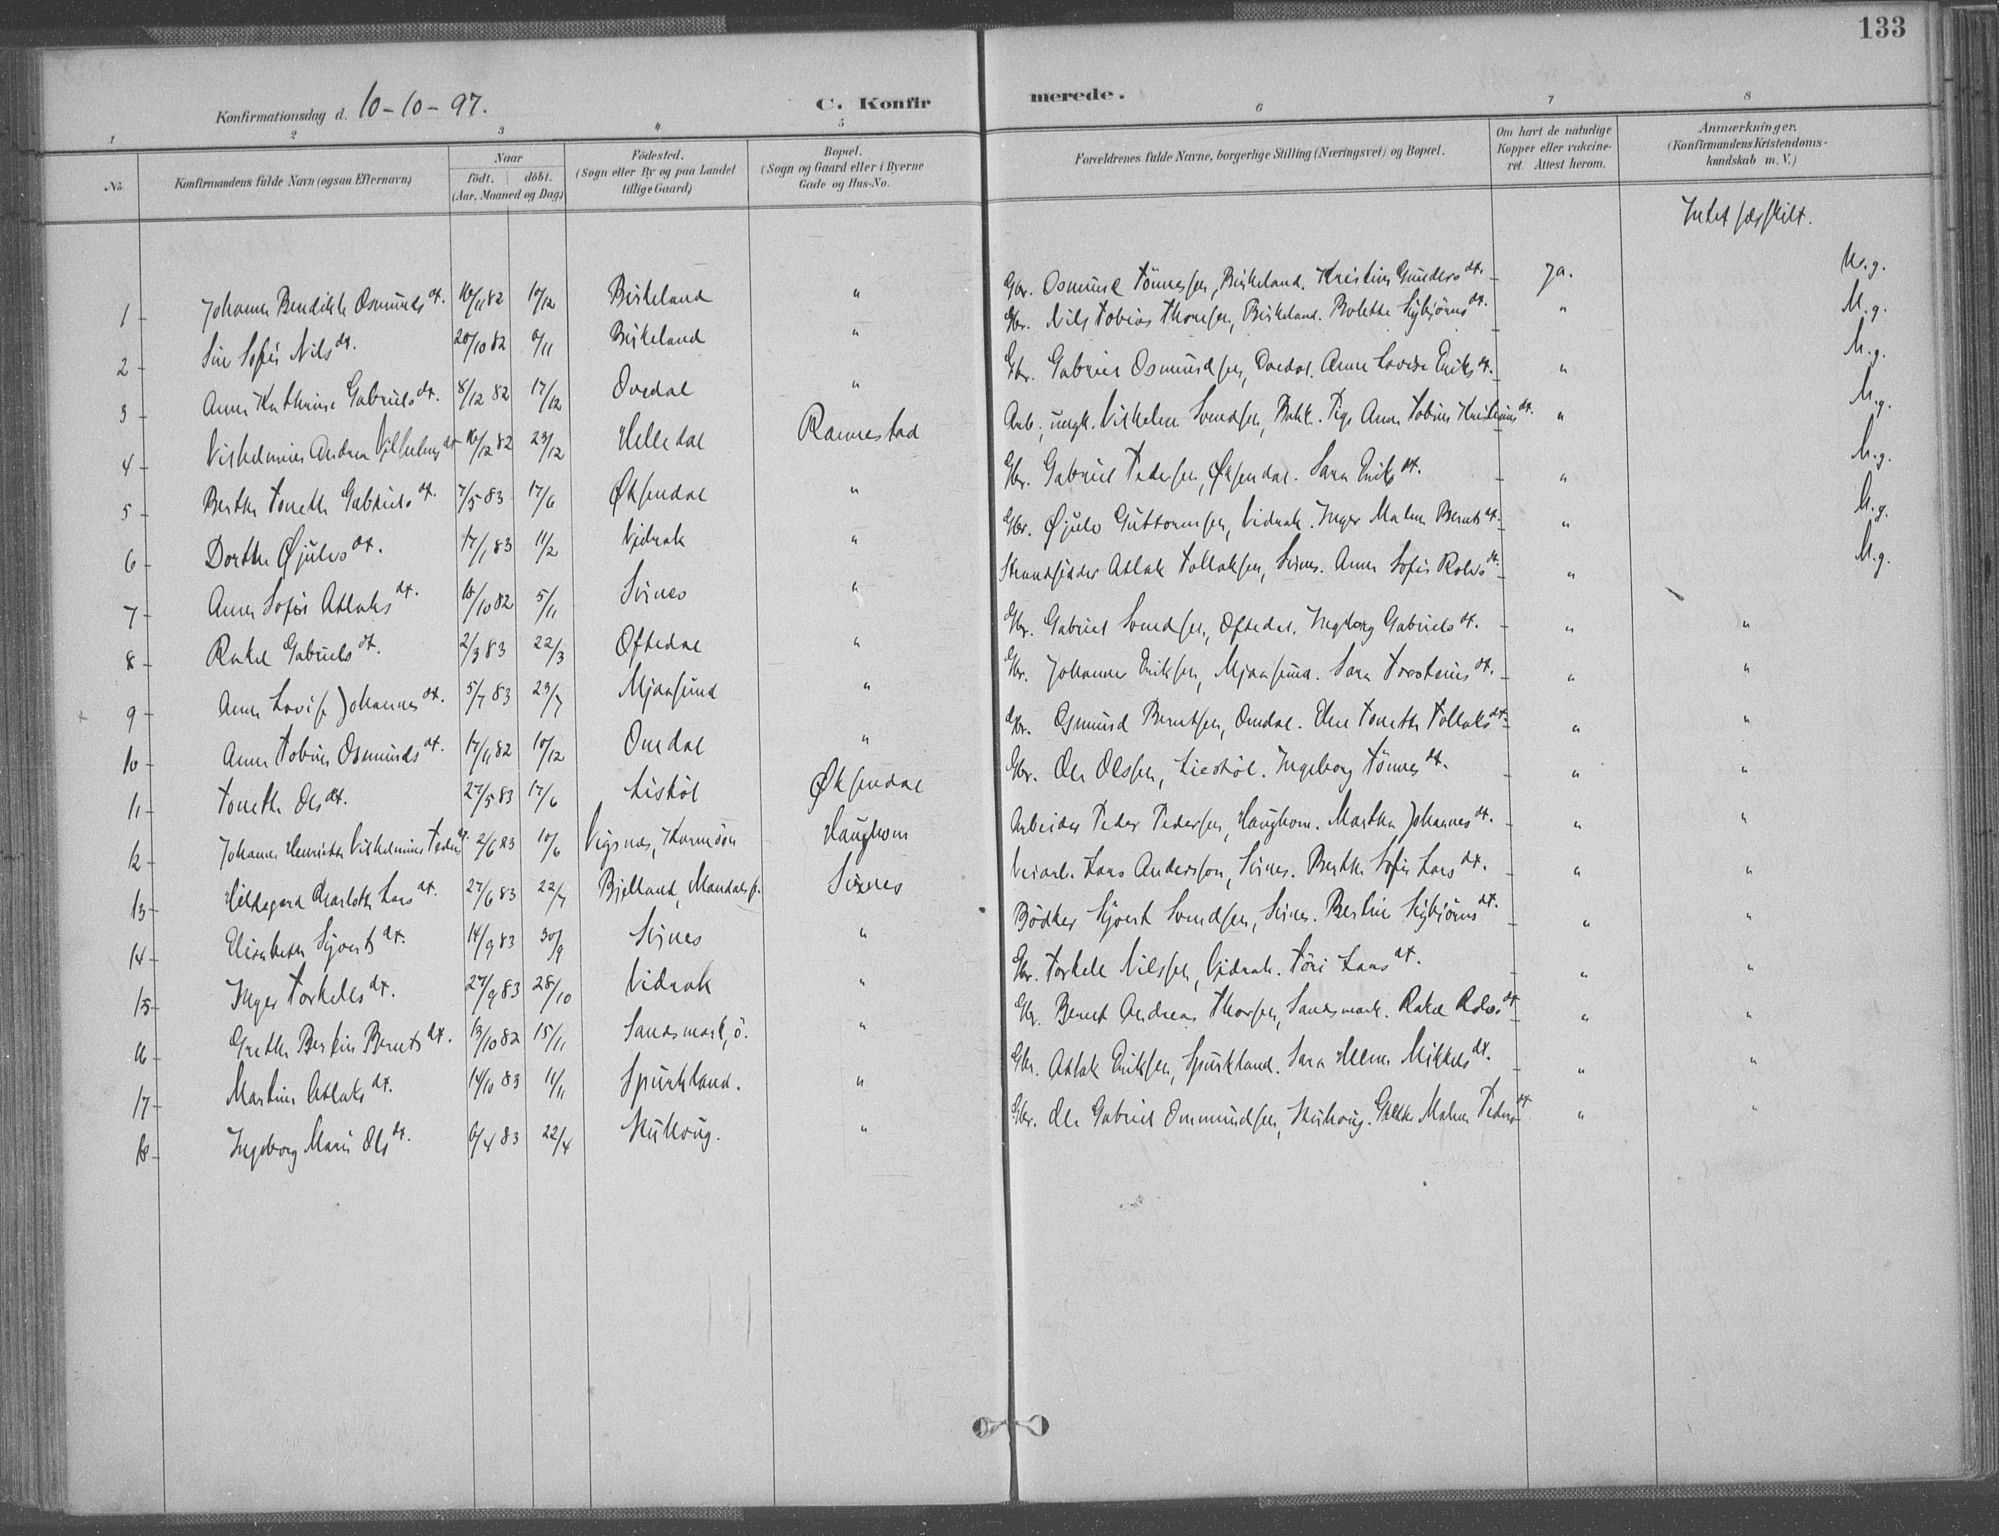 133
Konfirmationsdag d. 10-10-97.
C. Konfirmerede.
1 2 3 4 5 6 7 8
No. Konfirmandens fulde Navn (ogsaa Efternavn) Naar födt. döbt. (Aar, Maaned og Dag) Födested. (Sogn eller By og paa Landet tillige Gaard) Bopæl. (Sogn og Gaard eller i Byerne Gade og Hus-No. Forældrenes fulde Navne, borgerlige Stilling (Næringsvei) og Bopæl. Om havt de naturlige Kopper eller vakcineret. Attest herom. Anmærkninger. (Konfirmandens Kristendomskundskab m. V.)
Intet særskilt.
1 Johanne Bendikte Osmunds dt. 16/11 82 10/12 Birkeland " Gbr. Osmund Tönnessen, Birkeland. Kristine Gunders dt. ja. M.g.
2 Sine Sofie Nils dt. 20/10 82 /11 Birkeland Gbr. Nils Tobias Thomsen, Birkeland. Bolette Sigbjörns dt. " M.g.
3 Anne Kathrine Gabriels dt. 8/12 82 17/12 Ovedal " Gbr. Gabriel Osmundsen, Ovedal. Anne Lovise Eriks dt. " M.g.
4 Vilhelmine Andrea Vilhelms dt. 16/12 82 23/12 Helledal Ramestad Arb., ungk. Vilhelm Svendsen, Pige Anne Tobine Kristians dt. " M.g.
5 Berthe Tonette Gabriels dt. 7/5 83 17/6 Øksendal " Gbr. Gabriel Pedersen, Øksendal. Sara Eriks dt. " M.g.
6 Dorthe Øjulvs dt. 17/1 83 11/2 Vidrak " Gbr. Øjulv Guttormsen, Vidrak. Inger Malene Bernts dt. " M.g.
7 Anne Sofie Atlaks dt. 18/10 82 5/11 Sirnes " Strandsidder Atlak Tollaksen, Sirnes. Anne Sofie Rolvs dt. " M.g.
8 Rakel Gabriels dt. 2/3 83 22/3 Oftedal " Gbr. Gabriel Svendsen, Oftedal. Ingeborg Gabriels dt. " "
9 Anne Lovise Johannes dt. 5/7 83 23/7 Mjaasund " Gbr. Johannes Eriksen, Mjaasund. Sara Torsteins dt. " "
10 Anne Tobine Osmunds dt. 17/11 82 10/12 Omdal " Gbr. Osmund Berntsen, Omdal. Elen Tonette Tollaks dt. " "
11 Tonette Ols dt. 27/5 83 17/6 Liestöl Øksendal Gbr. Ole Olssen, Liestöl. Ingeborg Tönnes dt. " "
12 Johanne Henriette Vilhelmine Peders dt. 2/6 83 10/6 Vigsnes, Karmöen Haughom Arbeider Peder Pedersen, Haughom. Marthe Johannes dt. " "
13 Hildegard Charlotte Lars dt. 27/6 83 22/7 Bjelland, Mandals p. Sirnes Veiarb. Lars Andersson, Sirnes. Berthe Sofie Lars dt. " "
14 Elisabeth Sjverts dt. 14/9 83 30/9 Sirnes " Bödker Sjvert Svendsen, Sirnes. Bertine Sigbjörns dt. " "
15 Inger Torkels dt. 27/9 83 28/10 Vidrak " Gbr. Torkell Nilssen, Vidrak. Töri Lars dt. " "
16 Grethe Bertine Bernts dt. 13/10 82 15/11 Sandsmark, ö. " Gbr. Bernt Andreas Thorsen, Sandsmark. Rakel Rolvs dt. " "
17 Martine Atlaks dt. 14/10 83 11/11 Spurkland. " Gbr. Atlak Eriksen, Spurkland. Sara Helene Mikkels dt. " "
18 Ingeborg Marie Ols dt. 6/4 83 22/4 " Gbr. Ole Gabriel Ommundsen, Grethe Malene Peders dt. " "